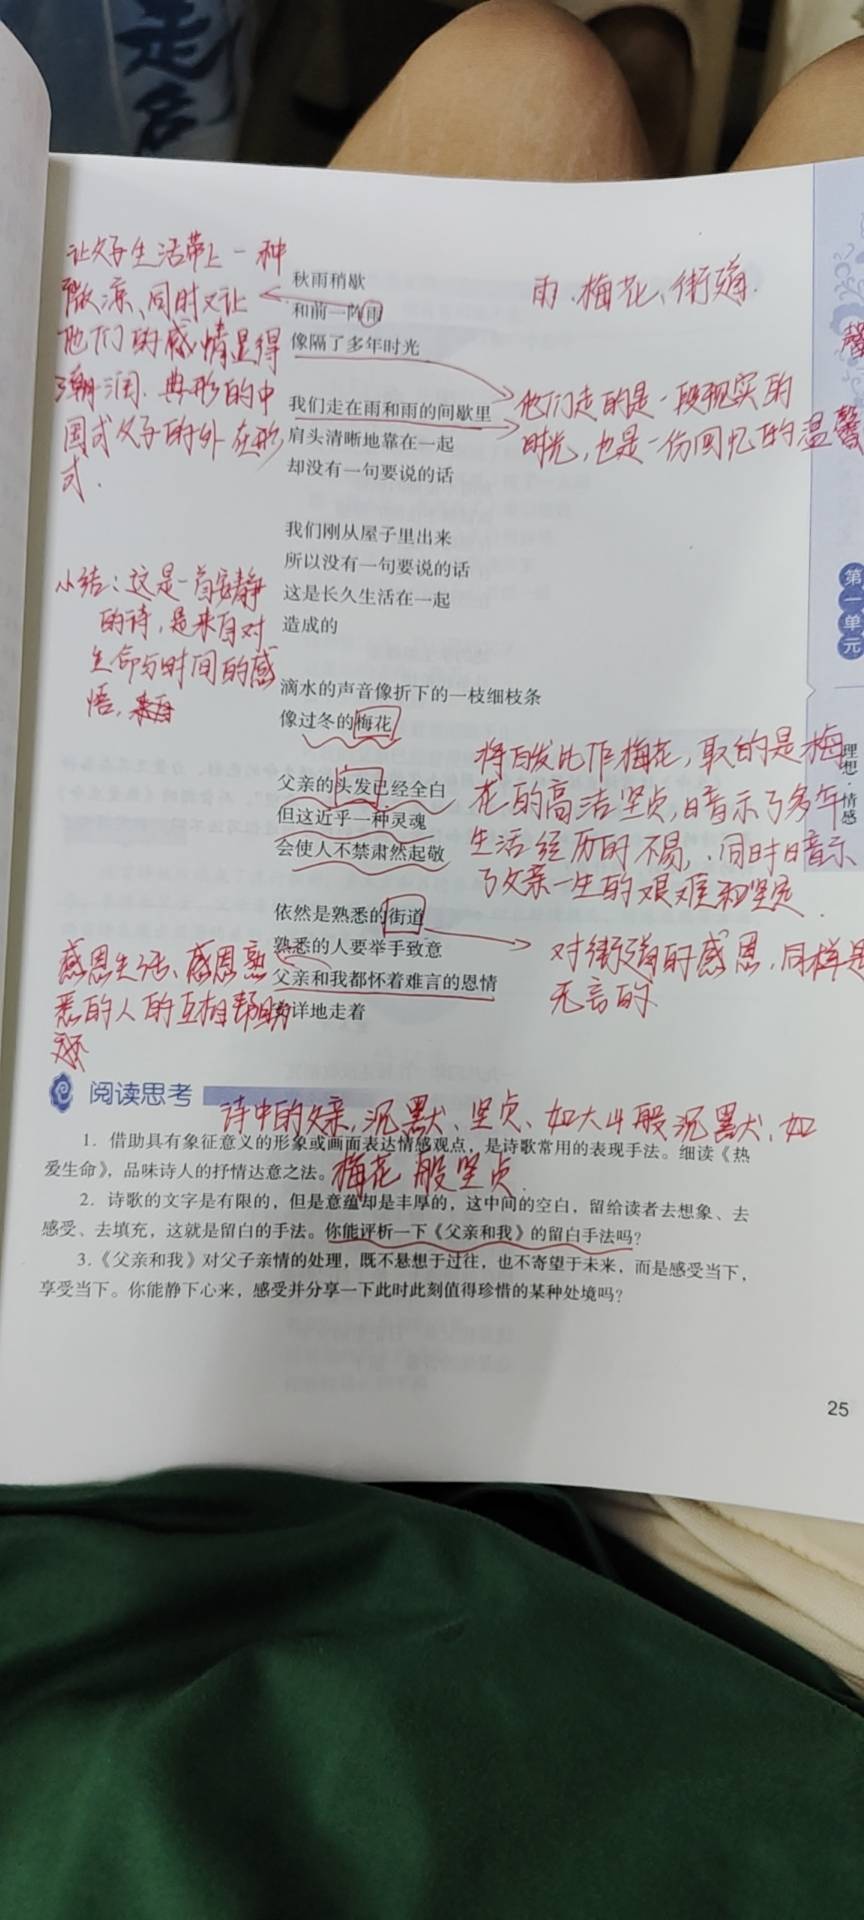 让父子生活带上一种
微凉、同时又让
他们的感情显得
潮润.典形的中
国式父子的外在形
式.
雨、梅花、街道.
秋雨稍歇
和前一阵雨
像隔了多年时光
我们走在雨和雨的间歇里
肩头清晰地靠在一起
却没有一句要说的话
他们走的是一段现实的
时光,也是一份回忆的温馨
馨
我们刚从屋子里出来
所以没有一句要说的话
这是长久生活在一起
造成的
小结:这是一首安静
的诗,是来自对
生命与时间的感
悟,
滴水的声音像折下的一枝细枝条
像过冬的梅花
父亲的头发已经全白
但这近乎一种灵魂
会使人不禁肃然起敬
将白发比作梅花,取的是梅
花的高洁坚贞,暗示了多年
生活经历的不易,同时暗示
了父亲一生的艰难和坚定.
依然是熟悉的街道
熟悉的人要举手致意
父亲和我都怀着难言的恩情
安详地走着
对街道的感恩,同样是
无言的
感恩生活、感恩熟
悉的人的互相帮助
第一单元
理想·情感
阅读思考
诗中的父亲,沉默、坚贞、如大山般沉默、如
梅花般坚贞
1. 借助具有象征意义的形象或画面表达情感观点,是诗歌常用的表现手法。细读《热
爱生命》,品味诗人的抒情达意之法。
2. 诗歌的文字是有限的,但是意蕴却是丰厚的,这中间的空白,留给读者去想象、去
感受、去填充,这就是留白的手法。你能评析一下《父亲和我》的留白手法吗?
3.《父亲和我》对父子亲情的处理,既不悬想于过往,也不寄望于未来,而是感受当下,
享受当下。你能静下心来,感受并分享一下此时此刻值得珍惜的某种处境吗?
25